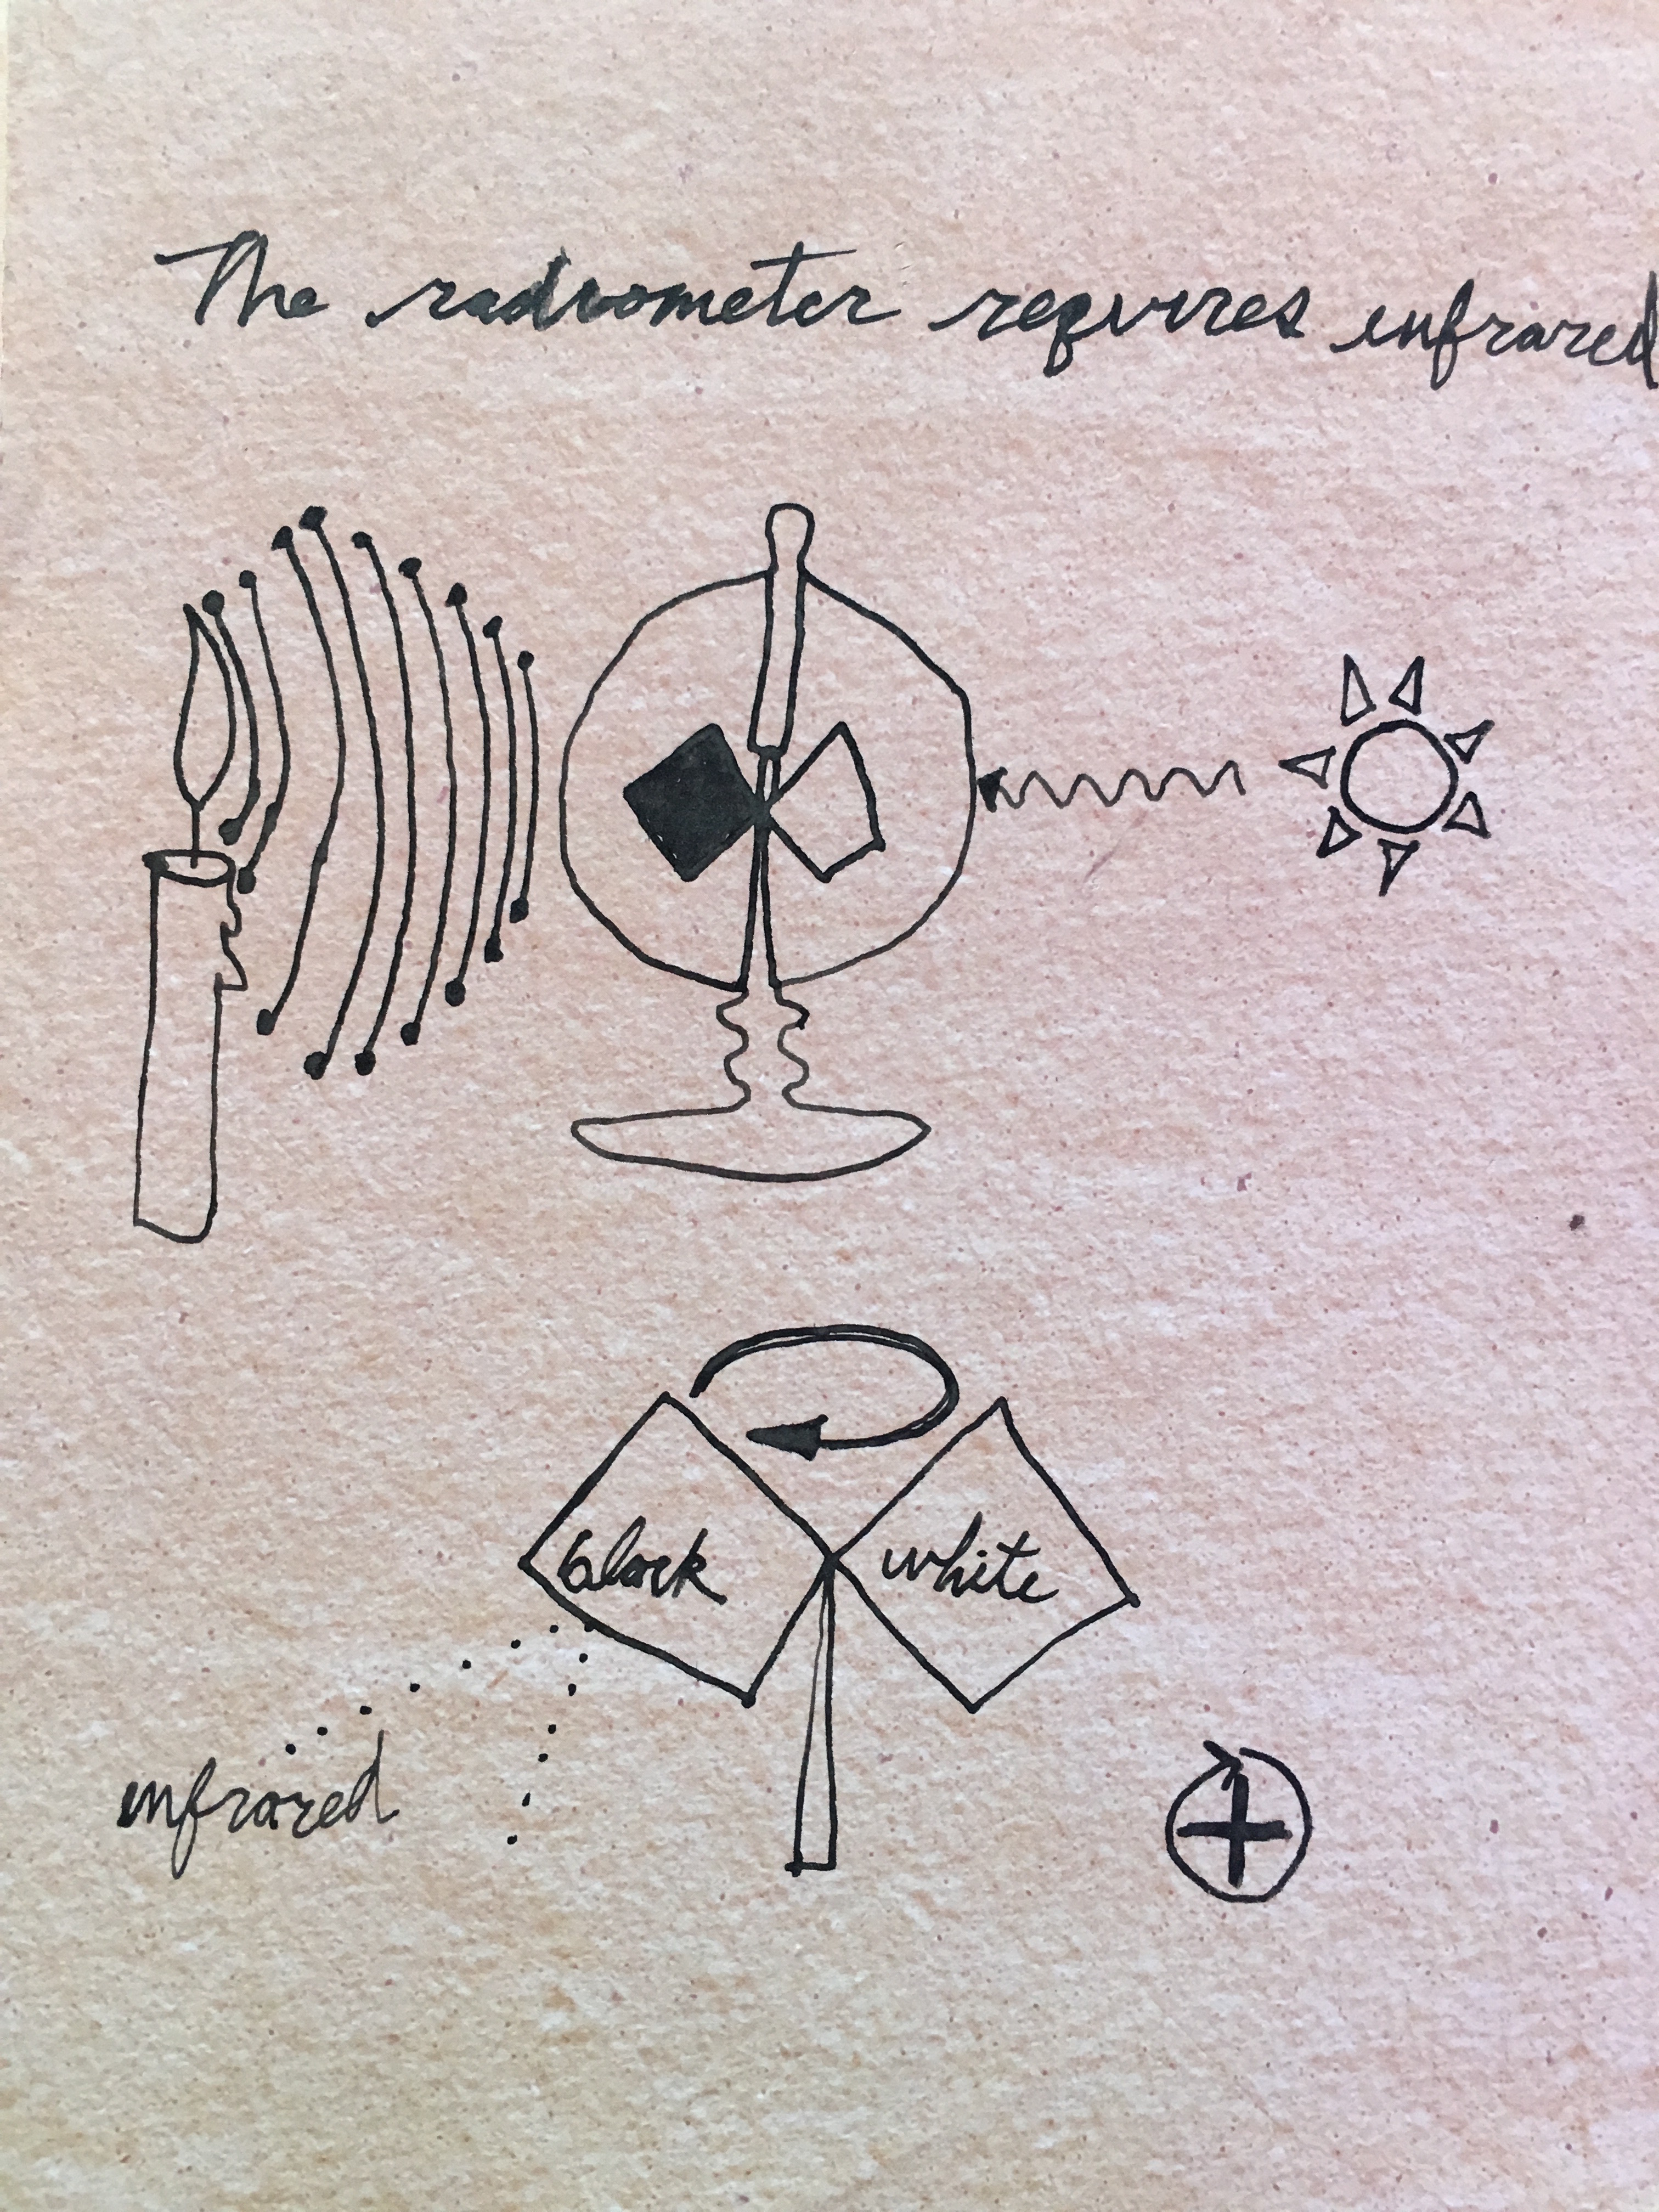 The radiometer requires infrared
black white
infrared